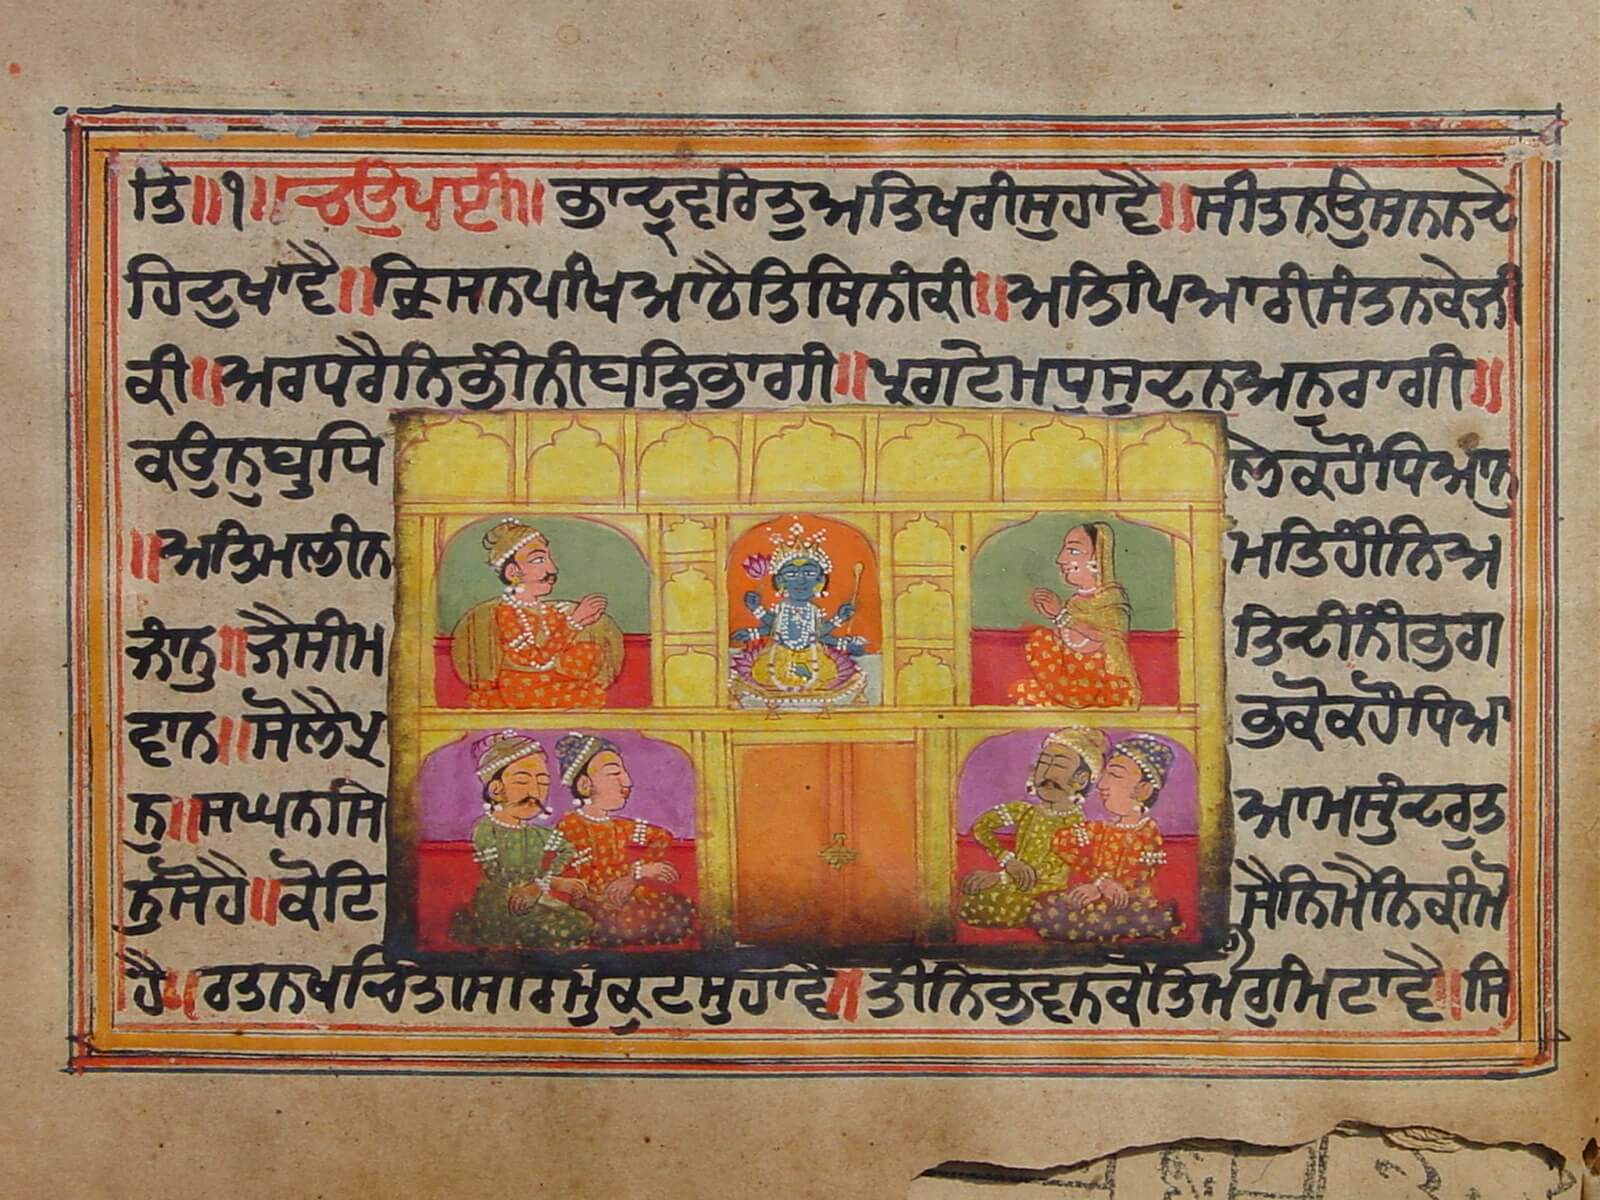 ਤਿ॥੧॥ ਚਉਪਈ॥ ਭਾਦ੍ਰਵਰਿਤੁਅਤਿਖਰੀਸੁਹਾਵੈ॥ਸੀਤਨਉਸਨਨਦੇ
ਹਿਦੁਖਾਵੈ॥ਕ੍ਰਿਸਨਪਖਿਆਠੈਤਿਥਿਨੀਕੀ॥ਅਤਿਪਿਆਰੀਸੰਤਨਕੇਜੀ
ਕੀ॥ਅਰਧਰੈਨਿਭੀਨੀਬਡਿਭਾਗੀ॥ਪ੍ਰਗਟੇਮਧੁਸੂਦਨਅਨੁਰਾਗੀ॥
ਕਉਨੁਬੁਧਿ ਲੇਕਹੌਧਿਆਨੁ
॥ਅਤਿਮਲੀਨ ਮਤਿਹੀਨਿਅ
ਜਾਨੁ॥ਜੈਸੀਮ ਤਿਦੀਨੀਭਗ
ਵਾਨ॥ਸੋਲੈਪ੍ਰ ਭਕੋਕਹੌਧਿਆ
ਨੁ॥ਸਘਨਸਿ ਆਮਸੁੰਦਰੁਤ
ਨੁਸੋਹੈ॥ਕੋਟਿ ਸੈਨਿਮੈਨਿਕੀਮੋ
ਹੈ॥ਰਤਨਖਚਿਤਸਾਰਮੁਕੁਟਸੁਹਾਵੈ॥ਤੀਨਿਭਵਨਕੋਤਿਮਰੁਮਿਟਾਵੈ॥ਸਿ